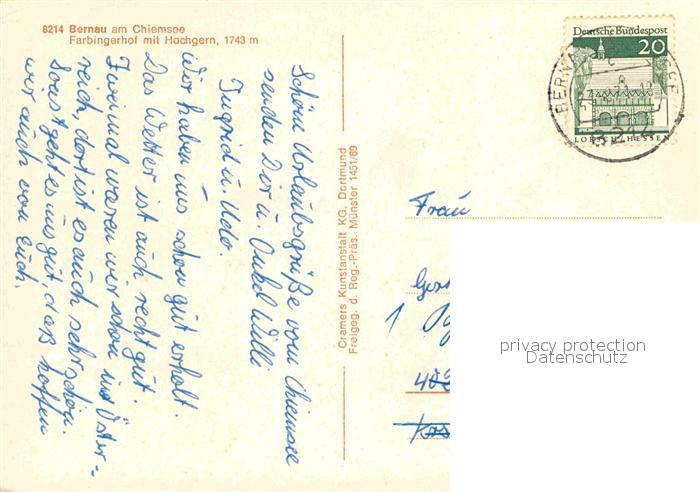 8214 Bernau am Chiemsee
Farbingerhof mit Hochgern, 1743 m
Schöne Urlaubsgrüße vom Chiemsee
senden Dir u. Onkel Willi
Ingrid u. Udo.
Wir haben uns schon gut erholt.
Das Wetter ist auch recht gut.
Zweimal waren wir schon in Öster-
reich, dort ist es auch sehr schön.
Sonst geht es uns gut, das hoffen
wir auch von Euch.
Cramers Kunstanstalt KG, Dortmund
Freigeg. d. Reg.-Präs. Münster 1451/69
Deutsche Bundespost
20
LORSCH/HESSEN
8214
Frau
1
privacy protection
Datenschutz